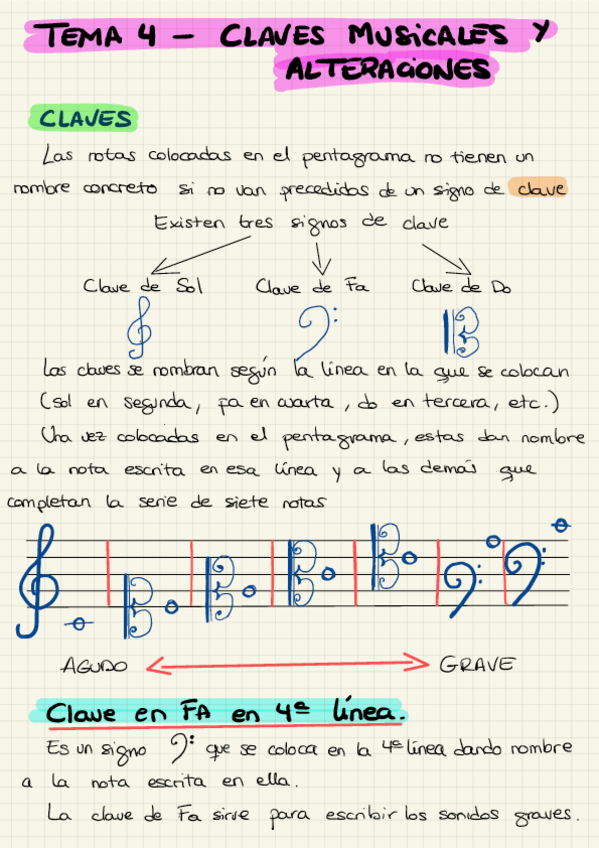 TEMA 4 – CLAVES MUSICALES Y
ALTERACIONES
CLAVES
Las notas colocadas en el pentagrama no tienen un
nombre concreto si no van precedidas de un signo de clave
Existen tres signos de clave
Clave de Sol Clave de Fa Clave de Do
Las claves se nombran según la línea en la que se colocan
(sol en segunda, fa en cuarta, do en tercera, etc.)
Una vez colocadas en el pentagrama, estas dan nombre
a la nota escrita en esa línea y a las demás que
completan la serie de siete notas
AGUDO GRAVE
Clave en FA en 4ª línea.
Es un signo que se coloca en la 4ª línea dando nombre
a la nota escrita en ella.
La clave de Fa sirve para escribir los sonidos graves.